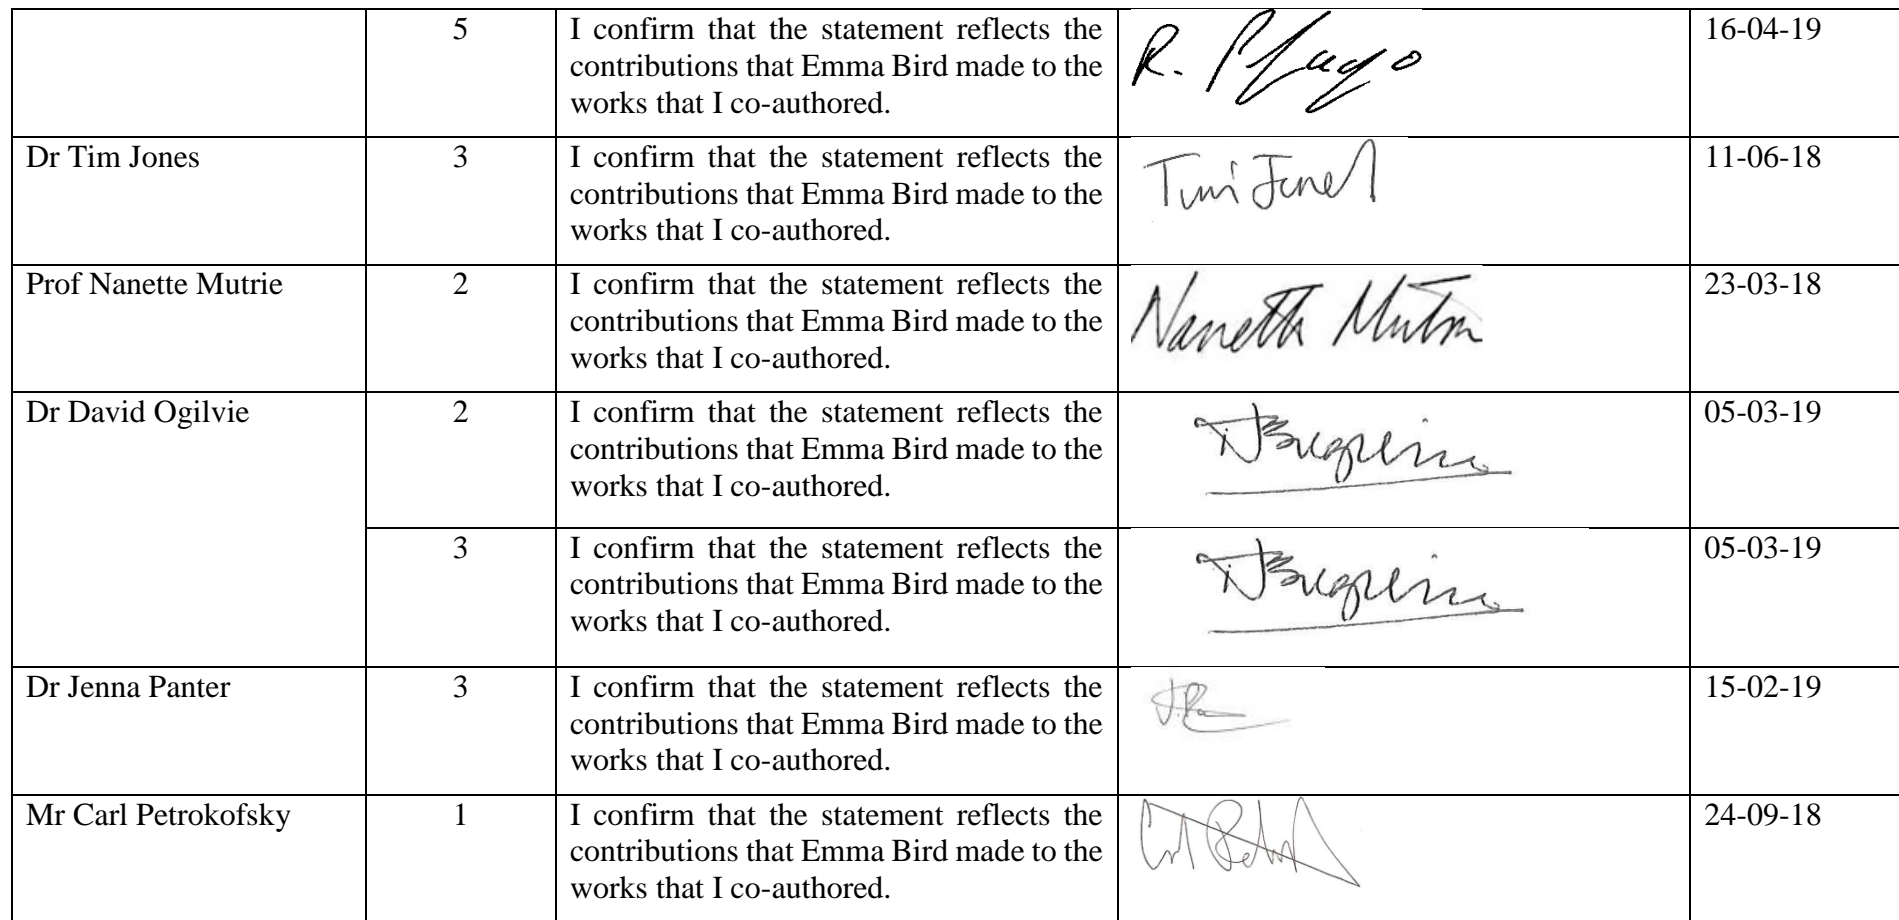 5 I confirm that the statement reflects the 16-04-19
contributions that Emma Bird made to the
works that I co-authored.
R.
Dr Tim Jones 3 I confirm that the statement reflects the 11-06-18
contributions that Emma Bird made to the
works that I co-authored.
Tim Jones
Prof Nanette Mutrie 2 I confirm that the statement reflects the 23-03-18
contributions that Emma Bird made to the
works that I co-authored.
Nanette Mutrie
Dr David Ogilvie 2 I confirm that the statement reflects the 05-03-19
contributions that Emma Bird made to the
works that I co-authored.
3 I confirm that the statement reflects the 05-03-19
contributions that Emma Bird made to the
works that I co-authored.
Dr Jenna Panter 3 I confirm that the statement reflects the 15-02-19
contributions that Emma Bird made to the
works that I co-authored.
Mr Carl Petrokofsky 1 I confirm that the statement reflects the 24-09-18
contributions that Emma Bird made to the
works that I co-authored.